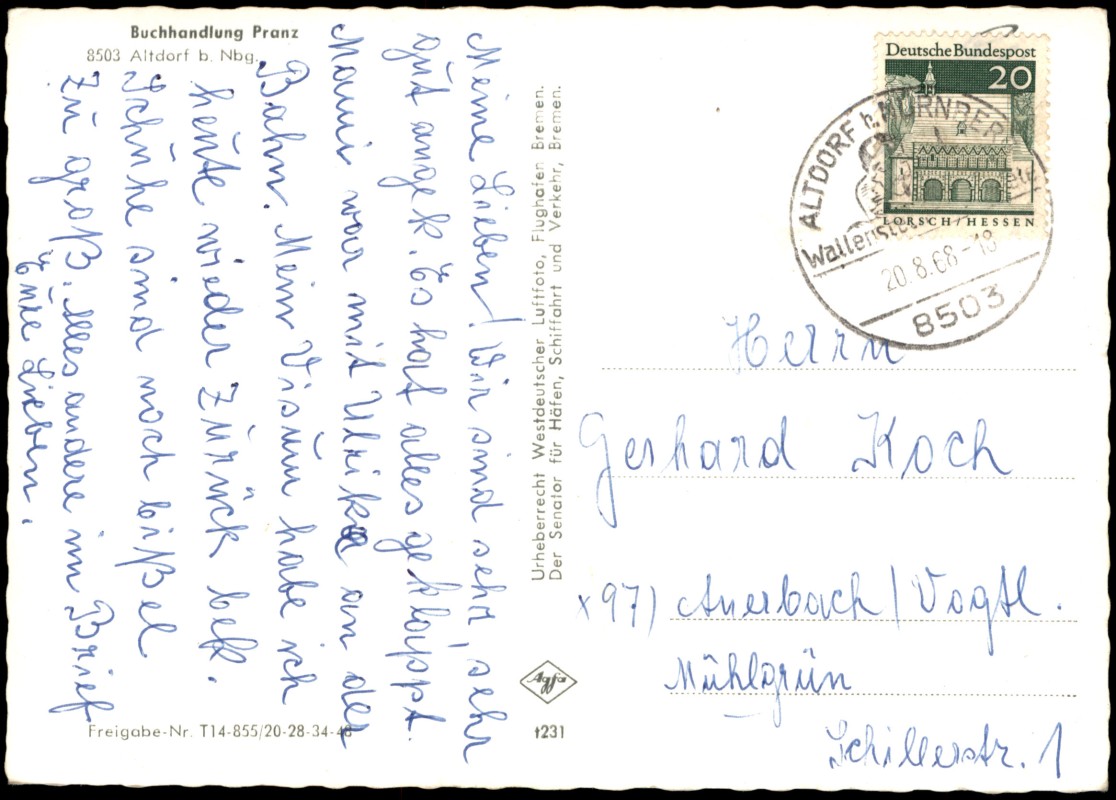 Buchhandlung Pranz
8503 Altdorf b. Nbg.
Meine Lieben! Wir sind sehr, sehr
gut angek. Es hat alles geklappt.
Mami war mit Ulrike an der
Bahn. Mein Visum habe ich
heute wieder zurück bek.
Schuhe sind noch bißel
zu groß. Alles andere im Brief
Eure Lieben.
Freigabe-Nr. T14-855/20-28-34-48
Urheberrecht Westdeutscher Luftfoto, Flughafen Bremen.
Der Senator für Häfen, Schiffahrt und Verkehr, Bremen.
Agfa
t231
Deutsche Bundespost
20
LORSCH/HESSEN
ALTDORF b. NÜRNBERG
20.8.68-18
8503
Herrn
Gerhard Koch
x 97) Auerbach/Vogtl.
Mühlgrün
Schillerstr. 1